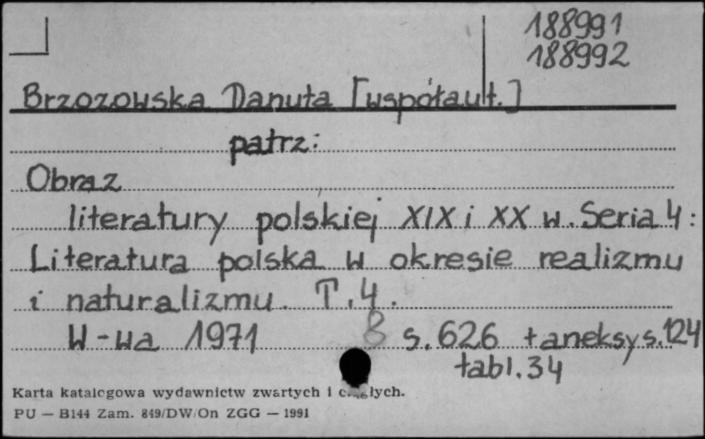 188991
188992
Brzozowska Danuta [współaut.]
patrz:
Obraz
literatury polskiej XIX i XX w. Seria 4:
Literatura polska w okresie realizmu
i naturalizmu. T.4.
W-wa 1971 8 s. 626 + aneksy s. 124
tabl. 34
Karta katalogowa wydawnictw zwartych i
PU — B144 Zam. 849/DW/On ZGG — 1991